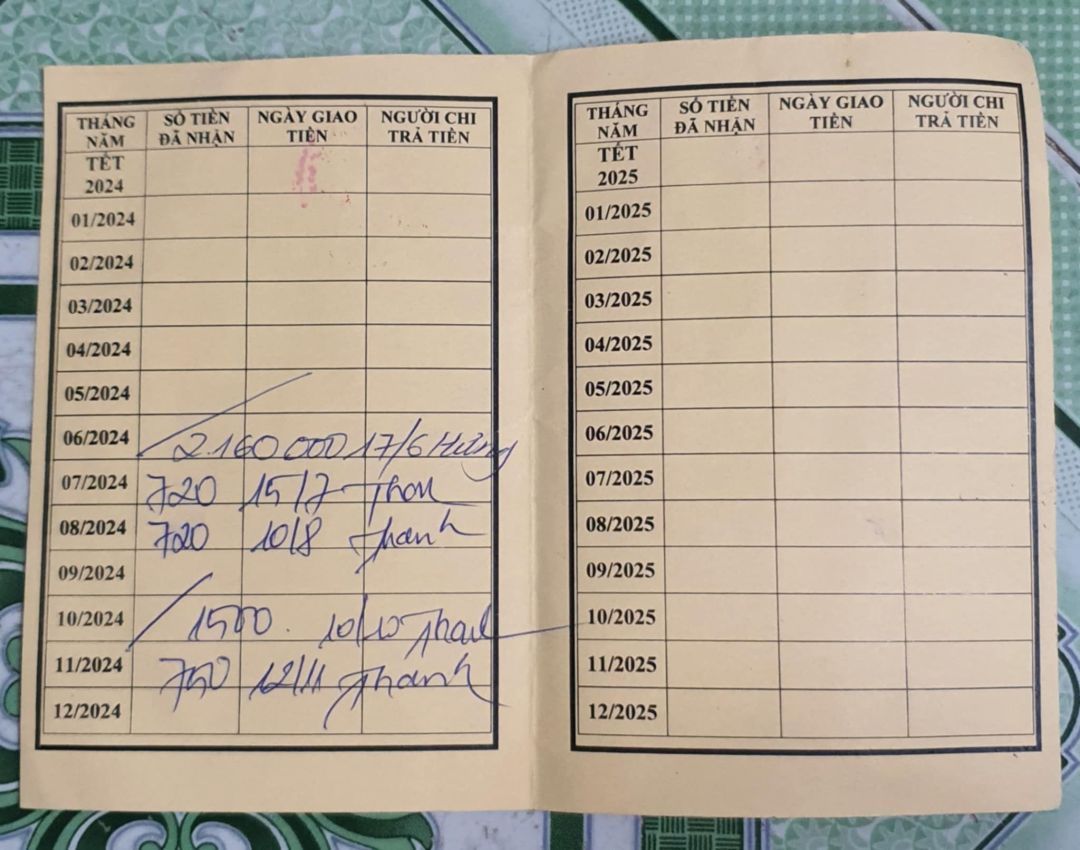 THÁNG NĂM SỐ TIỀN ĐÃ NHẬN NGÀY GIAO TIỀN NGƯỜI CHI TRẢ TIỀN
TẾT 2024
01/2024
02/2024
03/2024
04/2024
05/2024
06/2024 2.160.000 17/6 Hưng
07/2024 720 15/7
08/2024 720 10/8 Thanh
09/2024
10/2024 1500. 10/10
11/2024 750 12/11 Thanh
12/2024
THÁNG NĂM SỐ TIỀN ĐÃ NHẬN NGÀY GIAO TIỀN NGƯỜI CHI TRẢ TIỀN
TẾT 2025
01/2025
02/2025
03/2025
04/2025
05/2025
06/2025
07/2025
08/2025
09/2025
10/2025
11/2025
12/2025